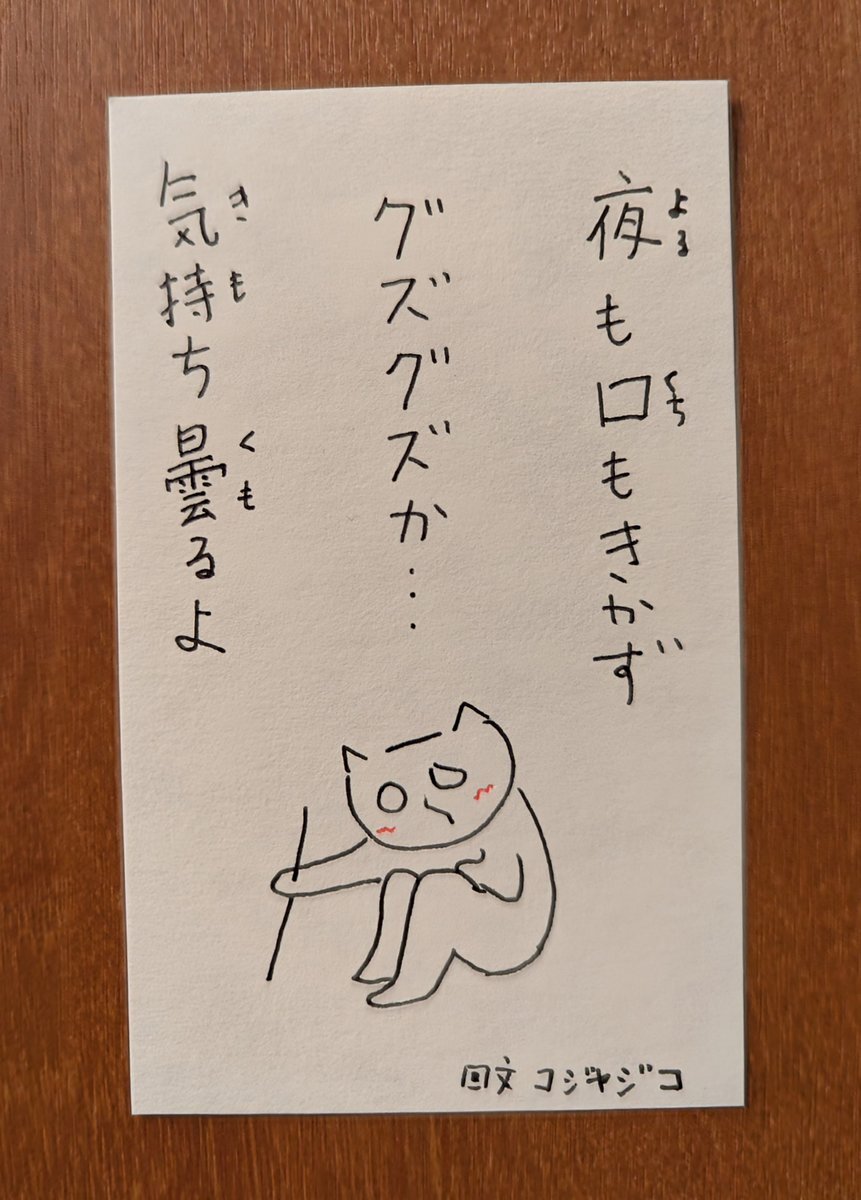 夜も口もきかず
よる
くち
グズグズか…
気持ち曇るよ
きも
くも
回文 コジヤジコ